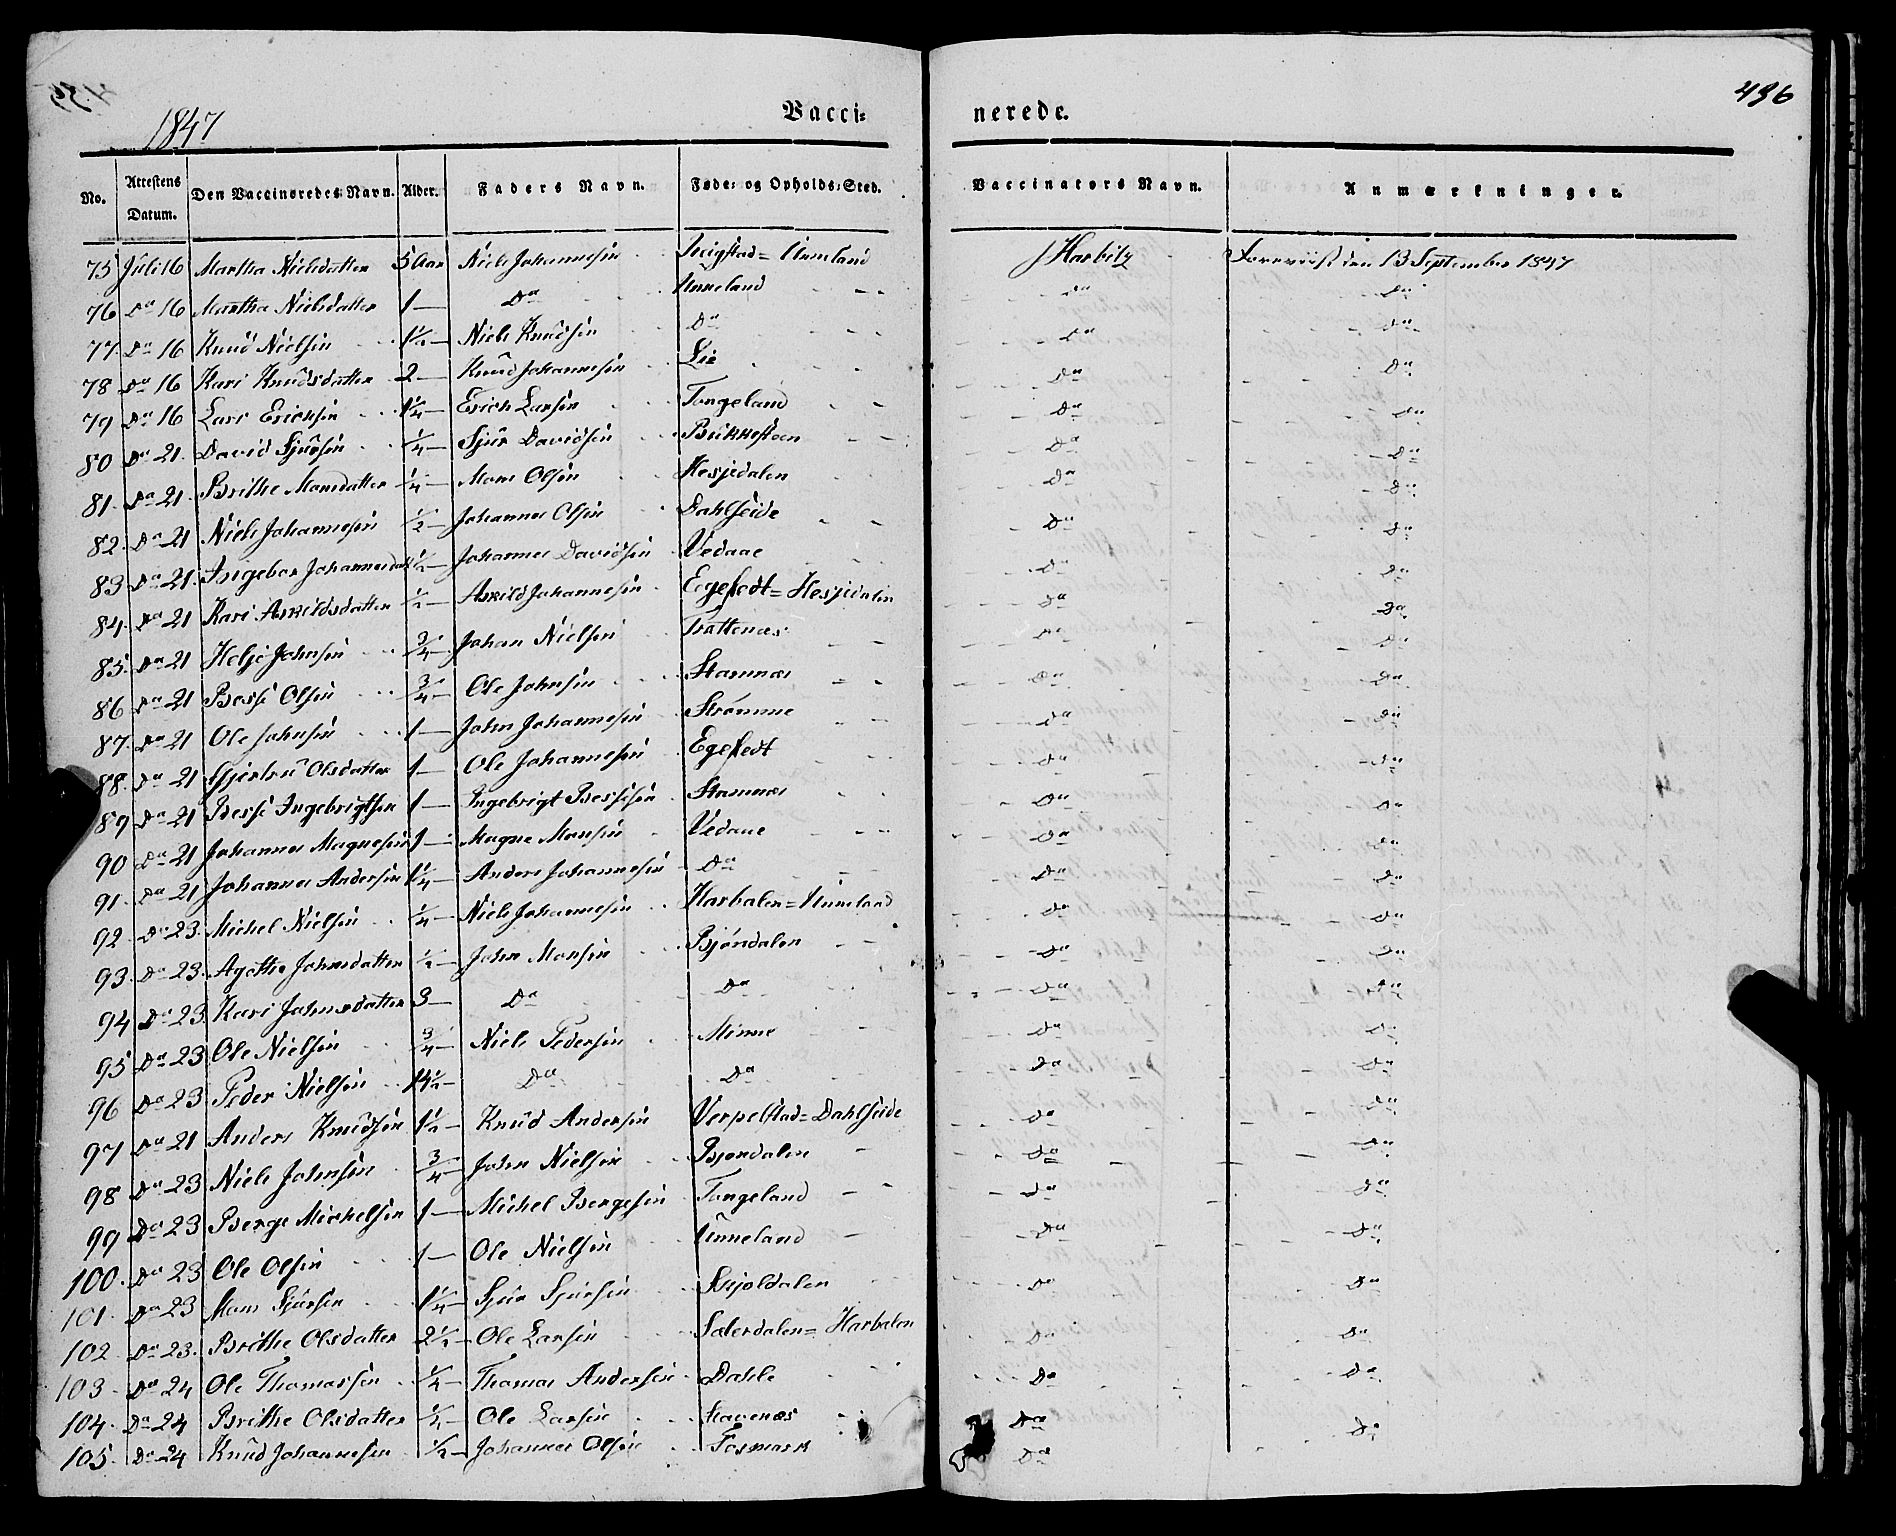 436
1847
Vacci- nerede.
No. Attestens Datum. Den Vaccineredes Navn. Alder. Faders Navn. Føde- og Opholds-Sted. Vaccinators Navn. Anmærkninger.
75 Juli 16 Martha Nielsdatter 5 Aar Niels Johannesen = Unneland J Harbitz Foreviist den 13 September 1847
76 Do 16 Martha Nielsdatter 1 — Do Unneland Do Do
77 Do 16 Knud Nielsen 1½ — Niels Knudsen Do Do Do
78 Do 16 Kari Knudsdatter 2 — Knud Johannesen Lie Do Do
79 Do 16 Lars Ericksen 1¼ — Erich Larsen Tongeland Do Do
80 Do 21 David Sjursen ¼ — Sjur Davidsen Do Do
81 Do 21 Brithe Monsdatter ¼ — Mons Olsen Hesjedalen Do Do
82 Do 21 Niels Johannesen ½ — Johannes Olsen Dahlseide Do Do
83 Do 21 Ingebor Johannesdat ½ — Johannes Davidsen Vedaae Do Do
84 Do 21 Kari Askildsdatter ½ — Askild Johannesen = Hesjedalen Do Do
85 Do 21 Helje Johnsen ¾ — Johan Nielsen Trættenæs Do Do
86 Do 21 Besse Olsen ¾ — Ole Johnsen Stamnæs Do Do
87 Do 21 Ole Johnsen 1 — John Johannesen Strømme Do Do
88 Do 21 Gjertru Olsdatter 1 — Ole Johannesen Do Do
89 Do 21 Besse Ingebrigtsen 1 — Ingebrigt Bessesen Stamnæs Do Do
90 Do 21 Johannes Magnesen 1 — Magne Monsen Vedaae Do Do
91 Do 21 Johannes Andersen 1¼ — Anders Johannesen Do Do Do
92 Do 23 Michel Nielsen ¼ — Niels Johannesen Harbalen = Unneland Do Do
93 Do 23 Agathe Johnsdatter ½ — John Monsen Bjørndalen Do Do
94 Do 23 Kari Johnsdatter 3 — Do Do Do Do
95 Do 23 Ole Nielsen ¾ — Niels Pedersen Minne Do Do
96 Do 23 Peder Nielsen 14½ — Do Do Do Do
97 Do 21 Anders Knudsen 1½ — Knud Andersen Verpelstad = Dahlseide Do Do
98 Do 23 Niels Johnsen ¾ — John Nielsen Bjørndalen Do Do
99 Do 23 Berge Michelsen 1 — Michel Bergesen Tongeland Do Do
100 Do 23 Ole Olsen 1 — Ole Nielsen Unneland Do Do
101 Do 23 Mons Sjursen 1¼ — Sjur Sjursen Skjoldalen Do Do
102 Do 23 Brithe Olsdatter 2½ — Ole Larsen Sælerdalen = Harbalen Do Do
103 Do 24 Ole Thomassen ¼ — Thomas Andersen Dahle Do Do
104 Do 24 Brithe Olsdatter ½ — Ole Larsen Stavenæs Do Do
105 Do 24 Knud Johannesen ½ — Johannes Olsen Fosmark Do